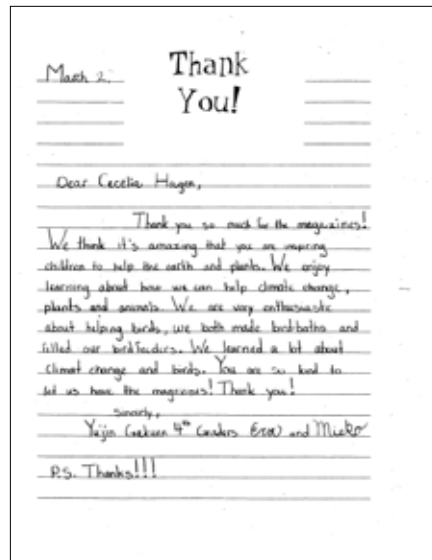 March 2.
Thank
You!
Dear Cecelia Hagen,
Thank you so much for the magazines!
We think it's amazing that you are inspiring
children to help the earth and plants. We enjoy
learning about how we can help climate change,
plants and animals. We are very enthusiastic
about helping birds, we both made birdbaths and
filled our birdfeeders. We learned a lot about
climat change and birds. You are so kind to
let us have the magazines! Thank you!
Sincerly,
Yujin 4th Graders and Mieko
P.S. Thanks!!!